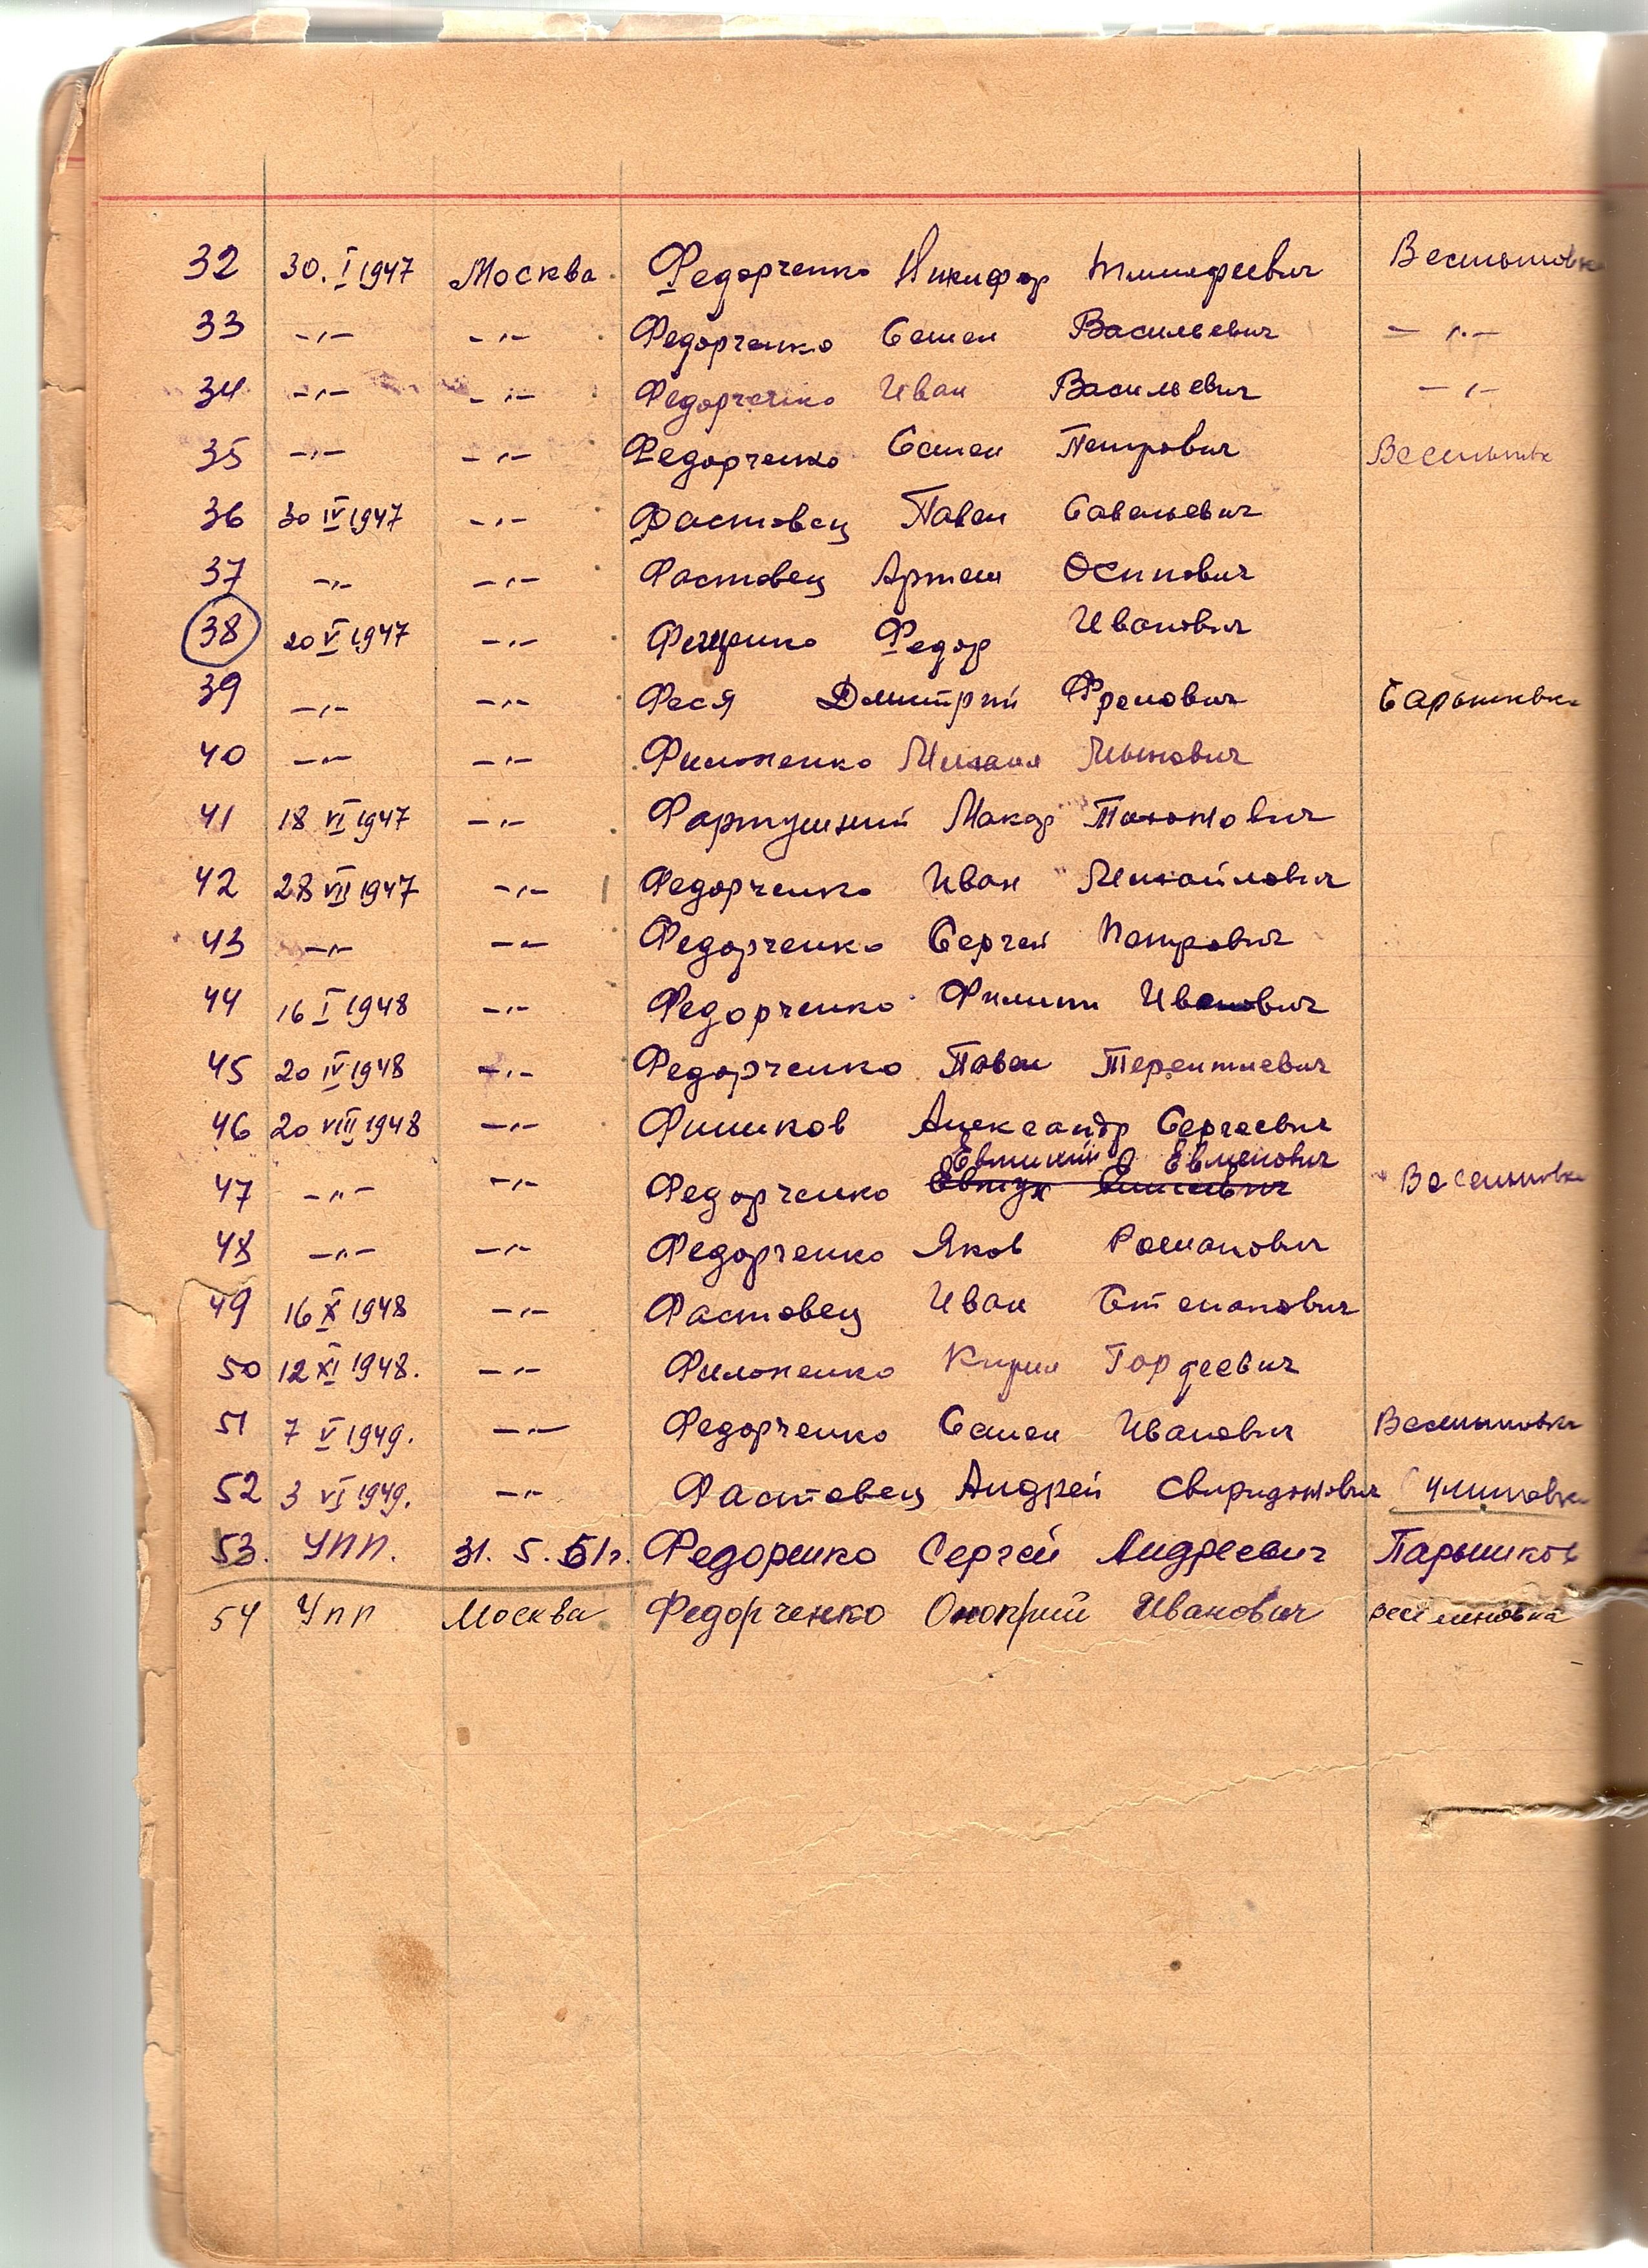 32 30. I 1947 Москва Федорченко Никифор Тимофеевич
33 -"- -"- Федорченко Семен Васильевич -"-
34 -"- -"- Федорченко Иван Васильевич -"-
35 -"- -"- Федорченко Семен Петрович
36 30 IV 1947 -"- Фастовец Павел Савельевич
37 -"- -"- Фастовец Артем Осипович
38 20 V 1947 -"- Фещенко Федор Иванович
39 -"- -"- Феся Дмитрий Фролович
40 -"- -"- Филоненко Михаил
41 18 VI 1947 -"- Фартушний Макар
42 28 VII 1947 -"- Федорченко Иван Михайлович
43 -"- -"- Федорченко Сергей Петрович
44 16 I 1948 -"- Федорченко Филипп Иванович
45 20 IV 1948 -"- Федорченко Павел Терентиевич
46 20 VIII 1948 -"- Фишков Александр Сергеевич
47 -"- -"- Федорченко
48 -"- -"- Федорченко Яков Романович
49 16 X 1948 -"- Фастовец Иван Степанович
50 12 XI 1948. -"- Филоненко Кирил Гордеевич
51 7 V 1949. -"- Федорченко Семен Иванович
52 3 VI 1949. -"- Фастовец Андрей Свиридонович
53. УПП. 31. 5. 51г. Федоренко Сергей Андреевич Парышков
54 Упп Москва Федорченко Оноприй Иванович